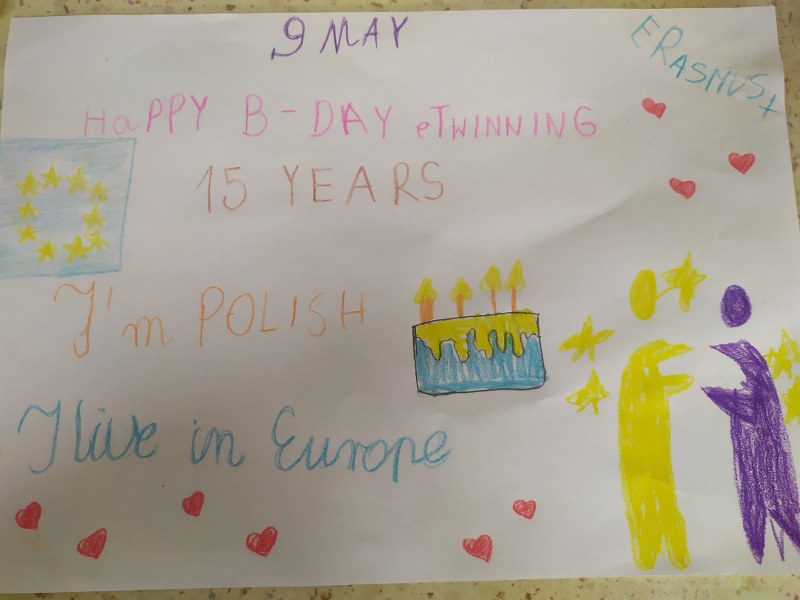 9 MAY
ERASMUS+
HaPPY B-DAY eTWINNING
15 YEARS
I'm POLISH
I live in Europe